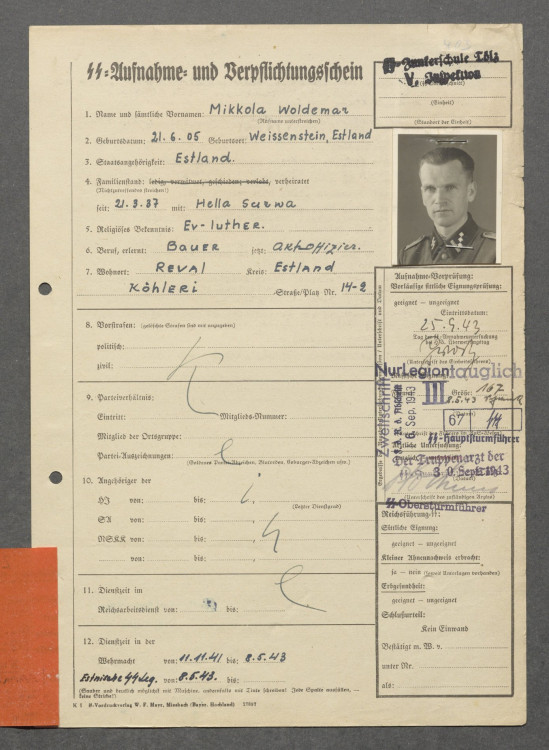 SS-Junkerschule Tölz
V. Inspektion
SS-Aufnahme- und Verpflichtungsschein
(Einheit)
(Standort der Einheit)
1. Name und sämtliche Vornamen: Mikkola Woldemar
(Rufname unterstreichen)
2. Geburtsdatum: 21.6.05 Geburtsort: Weissenstein, Estland
3. Staatsangehörigkeit: Estland.
4. Familienstand: ledig, verwitwet, geschieden, verlobt, verheiratet
(Nichtzutreffendes streichen!)
seit: 21.3.37 mit: Hella Surwa
5. Religiöses Bekenntnis: Ev-luther.
6. Beruf, erlernt: Bauer jetzt: Akt.Offizier.
7. Wohnort: Reval Kreis: Estland
Köhleri Straße/Platz Nr. 14-2
8. Vorstrafen: (gelöschte Strafen sind mit anzugeben)
politisch:
zivil:
9. Parteiverhältnis:
Eintritt: Mitglieds-Nummer:
Mitglied der Ortsgruppe:
Partei-Auszeichnungen:
10. Angehöriger der
HJ von: bis:
(Letzter Dienstgrad)
SA von: bis:
NSKK von: bis:
von: bis:
11. Dienstzeit im
Reichsarbeitsdienst von: bis:
12. Dienstzeit in der
Wehrmacht von: 11.11.41 bis: 8.5.43
Estnische SS Leg. von: 8.5.43. bis:
(Sauber und deutlich möglichst mit Maschine, andernfalls mit Tinte schreiben! Jede Spalte ausfüllen, — keine Striche!)
K 1 SS-Vordruckverlag W. F. Mayr, Miesbach (Bayer. Hochland)
Aufnahme-Überprüfung:
Vorläufige sittliche Eignungsprüfung:
geeignet – ungeeignet
Eintrittsdatum:
25.9.43
Nur Legion tauglich
Zweitschrift
III
Größe: 167
8.5.43
67
SS-Hauptsturmführer
Ärztliche Untersuchung:
Der Truppenarzt der
30. Sept. 1943
(Unterschrift des zuständigen Arztes)
SS-Obersturmführer
Reichsführung-SS:
Sittliche Eignung:
geeignet – ungeeignet
Kleiner Ahnennachweis erbracht:
ja – nein (soweit Unterlagen vorhanden)
Erbgesundheit:
geeignet – ungeeignet
Schlußurteil:
Kein Einwand
Bestätigt m. W. v.
unter Nr.
als: